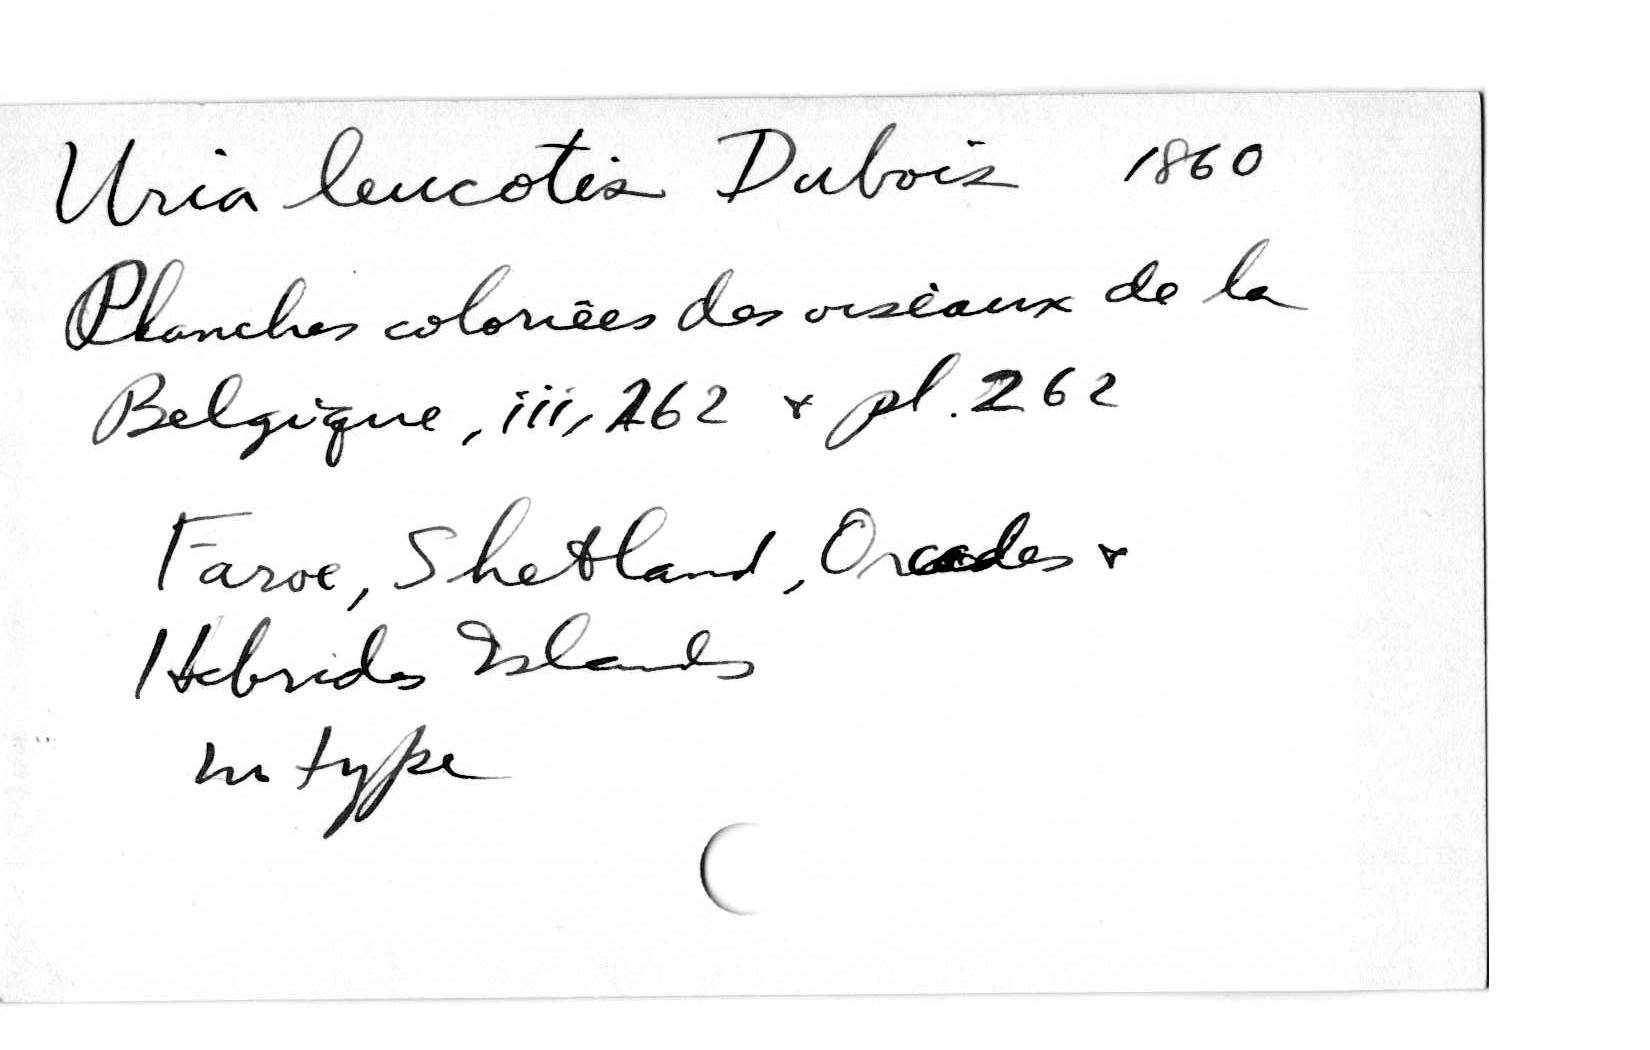 Uria leucotis Dubois 1860
Planches coloriées des oiseaux de la
Belgique, iii, 262 & pl. 262
Faroe, Shetland, Orcades &
Hebrides Islands
no type